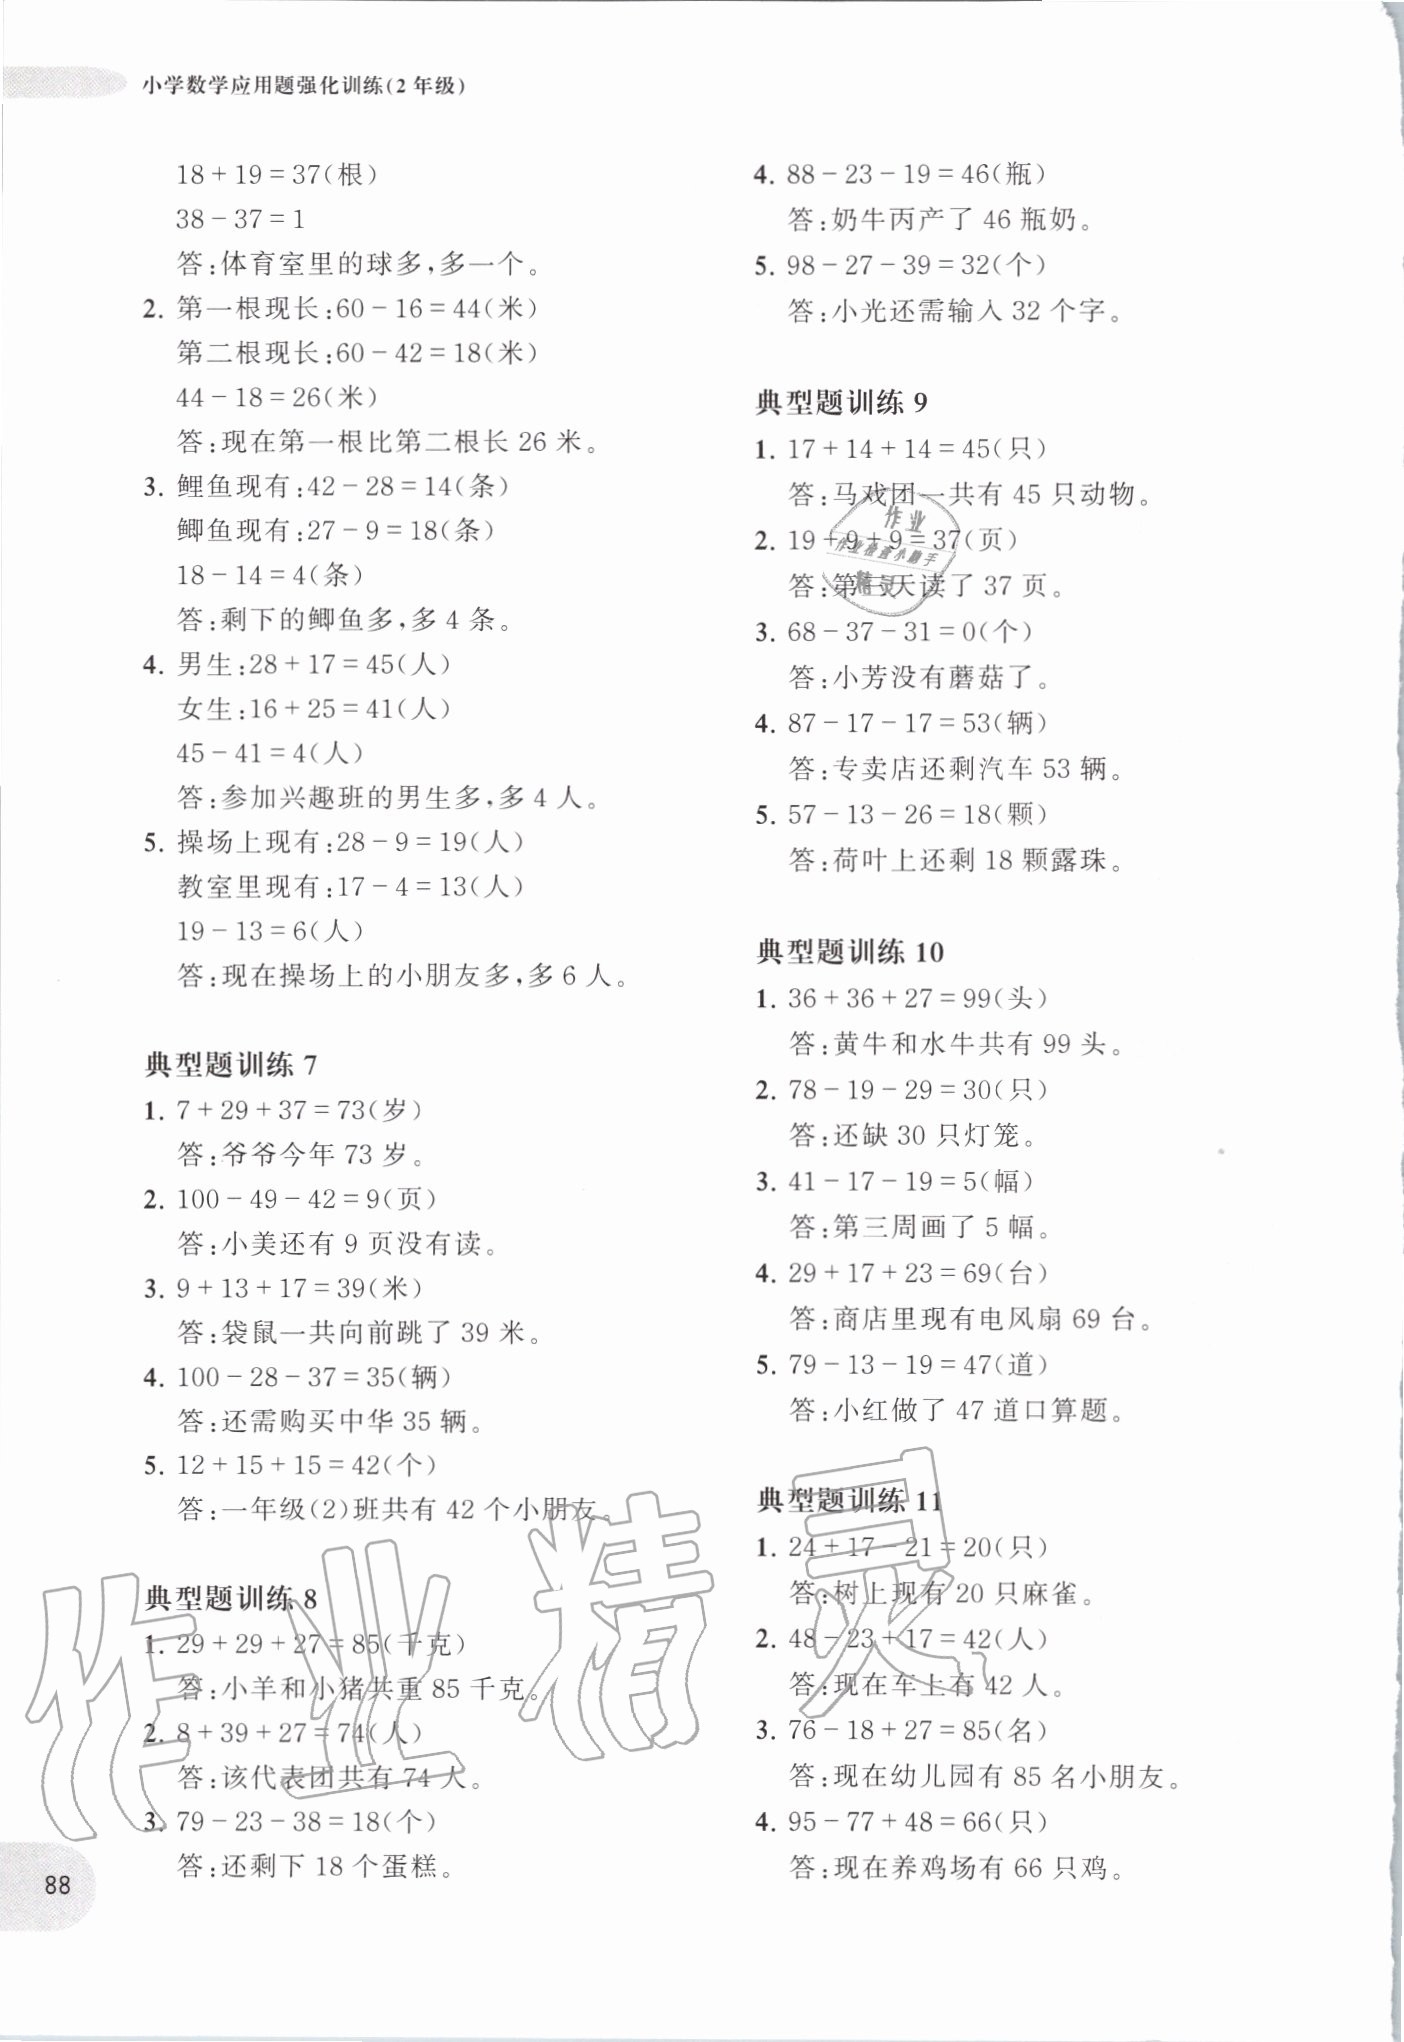 小学数学应用题强化训练(2年级)
18+19=37(根)
38-37=1
答:体育室里的球多,多一个。
2. 第一根现长:60-16=44(米)
第二根现长:60-42=18(米)
44-18=26(米)
答:现在第一根比第二根长26米。
3. 鲤鱼现有:42-28=14(条)
鲫鱼现有:27-9=18(条)
18-14=4(条)
答:剩下的鲫鱼多,多4条。
4. 男生:28+17=45(人)
女生:16+25=41(人)
45-41=4(人)
答:参加兴趣班的男生多,多4人。
5. 操场上现有:28-9=19(人)
教室里现有:17-4=13(人)
19-13=6(人)
答:现在操场上的小朋友多,多6人。
典型题训练7
1. 7+29+37=73(岁)
答:爷爷今年73岁。
2. 100-49-42=9(页)
答:小美还有9页没有读。
3. 9+13+17=39(米)
答:袋鼠一共向前跳了39米。
4. 100-28-37=35(辆)
答:还需购买中华35辆。
5. 12+15+15=42(个)
答:一年级(2)班共有42个小朋友。
典型题训练8
1. 29+29+27=85(千克)
答:小羊和小猪共重85千克。
2. 8+39+27=74(人)
答:该代表团共有74人。
3. 79-23-38=18(个)
答:还剩下18个蛋糕。
88
4. 88-23-19=46(瓶)
答:奶牛丙产了46瓶奶。
5. 98-27-39=32(个)
答:小光还需输入32个字。
典型题训练9
1. 17+14+14=45(只)
答:马戏团一共有45只动物。
2. 19+9+9=37(页)
答:第三天读了37页。
3. 68-37-31=0(个)
答:小芳没有蘑菇了。
4. 87-17-17=53(辆)
答:专卖店还剩汽车53辆。
5. 57-13-26=18(颗)
答:荷叶上还剩18颗露珠。
典型题训练10
1. 36+36+27=99(头)
答:黄牛和水牛共有99头。
2. 78-19-29=30(只)
答:还缺30只灯笼。
3. 41-17-19=5(幅)
答:第三周画了5幅。
4. 29+17+23=69(台)
答:商店里现有电风扇69台。
5. 79-13-19=47(道)
答:小红做了47道口算题。
典型题训练11
1. 24+17-21=20(只)
答:树上现有20只麻雀。
2. 48-23+17=42(人)
答:现在车上有42人。
3. 76-18+27=85(名)
答:现在幼儿园有85名小朋友。
4. 95-77+48=66(只)
答:现在养鸡场有66只鸡。
作业
作业检查小助手
精灵
作业精灵